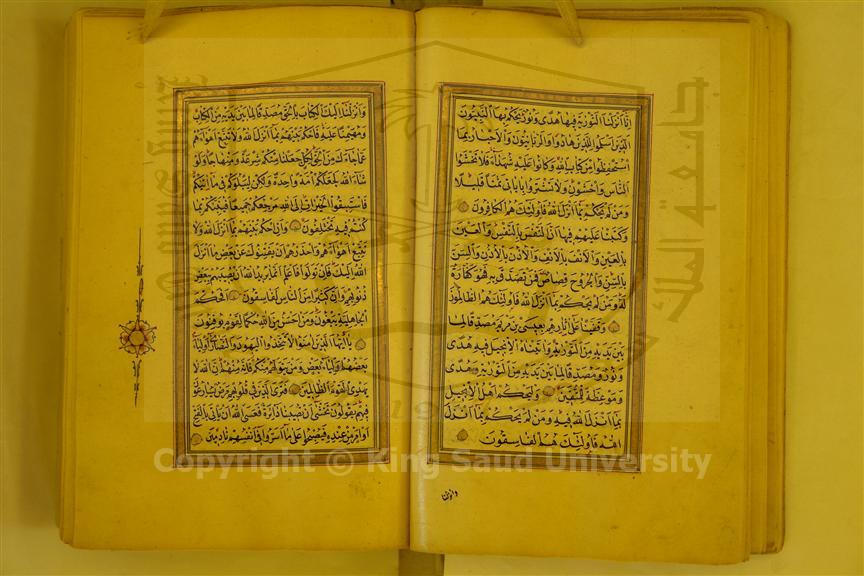 إنا أنزلنا التورية فيها هدى ونور يحكم بها النبيون
الذين أسلموا للذين هادوا والربانيون والأحبار بما
استحفظوا من كتاب الله وكانوا عليه شهداء فلا تخشوا
الناس واخشون ولا تشتروا بآياتي ثمنا قليلا
ومن لم يحكم بما أنزل الله فأولئك هم الكافرون
وكتبنا عليهم فيها أن النفس بالنفس والعين
بالعين والأنف بالأنف والأذن بالأذن والسن
بالسن والجروح قصاص فمن تصدق به فهو كفارة
له ومن لم يحكم بما أنزل الله فأولئك هم الظالمون
وقفينا على آثارهم بعيسى بن مريم مصدقا لما
بين يديه من التورية وآتيناه الإنجيل فيه هدى
ونور ومصدقا لما بين يديه من التورية وهدى
وموعظة للمتقين وليحكم أهل الإنجيل
بما أنزل الله فيه ومن لم يحكم بما أنزل
الله فأولئك هم الفاسقون
وأنزلنا
وأنزلنا إليك الكتاب بالحق مصدقا لما بين يديه من الكتاب
ومهيمنا عليه فاحكم بينهم بما أنزل الله ولا تتبع أهواءهم
عما جاءك من الحق لكل جعلنا منكم شرعة ومنهاجا ولو
شاء الله لجعلكم أمة واحدة ولكن ليبلوكم في ما آتيكم
فاستبقوا الخيرات إلى الله مرجعكم جميعا فينبئكم بما
كنتم فيه تختلفون وأن احكم بينهم بما أنزل الله ولا
تتبع أهواءهم واحذرهم أن يفتنوك عن بعض ما أنزل
الله إليك فإن تولوا فاعلم أنما يريد الله أن يصيبهم ببعض
ذنوبهم وإن كثيرا من الناس لفاسقون أفحكم
الجاهلية يبغون ومن أحسن من الله حكما لقوم يوقنون
يا أيها الذين آمنوا لا تتخذوا اليهود والنصارى أولياء
بعضهم أولياء بعض ومن يتولهم منكم فإنه منهم إن الله لا
يهدي القوم الظالمين فترى الذين في قلوبهم مرض يسارعون
فيهم يقولون نخشى أن تصيبنا دائرة فعسى الله أن يأتي بالفتح
أو أمر من عنده فيصبحوا على ما أسروا في أنفسهم نادمين
جامعة الملك
Copyright © King Saud University